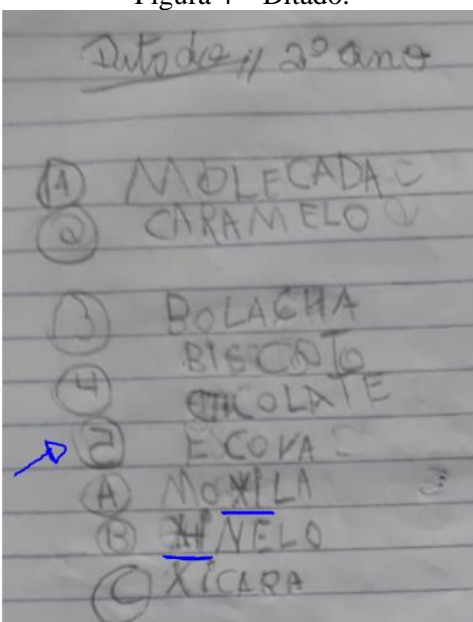 Figura 4 – Ditado.
Ditado // 2º ano
1 MOLECADA
2 CARAMELO
3 BOLACHA
BISCOTO
4 COLATE
5 ECOVA
A MOXILA
B NELO
C XICARA